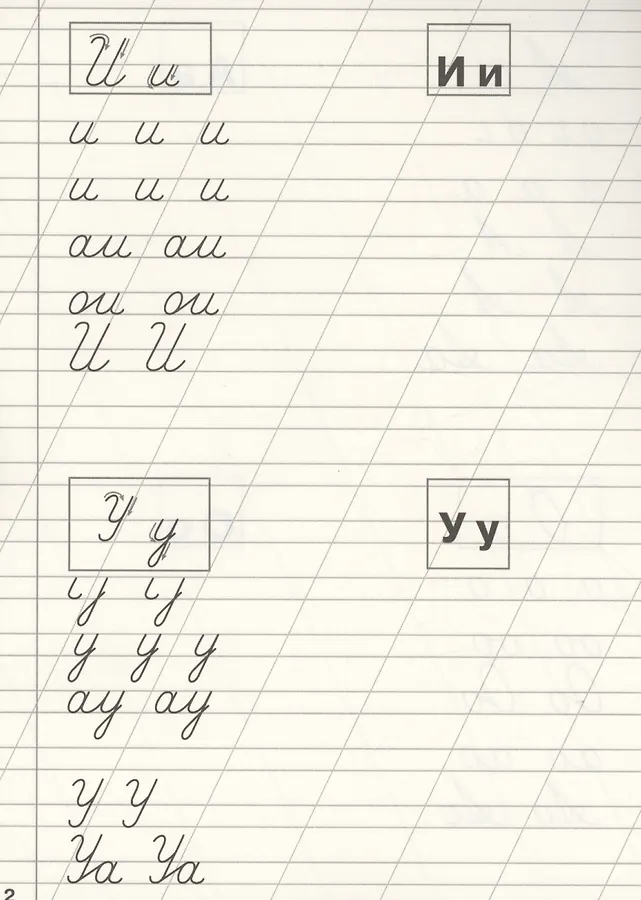 И и И и
и и и
и и и
аи аи
ои ои
И И
У у У у
у у
у у у
ау ау
У У
Уа Уа
2